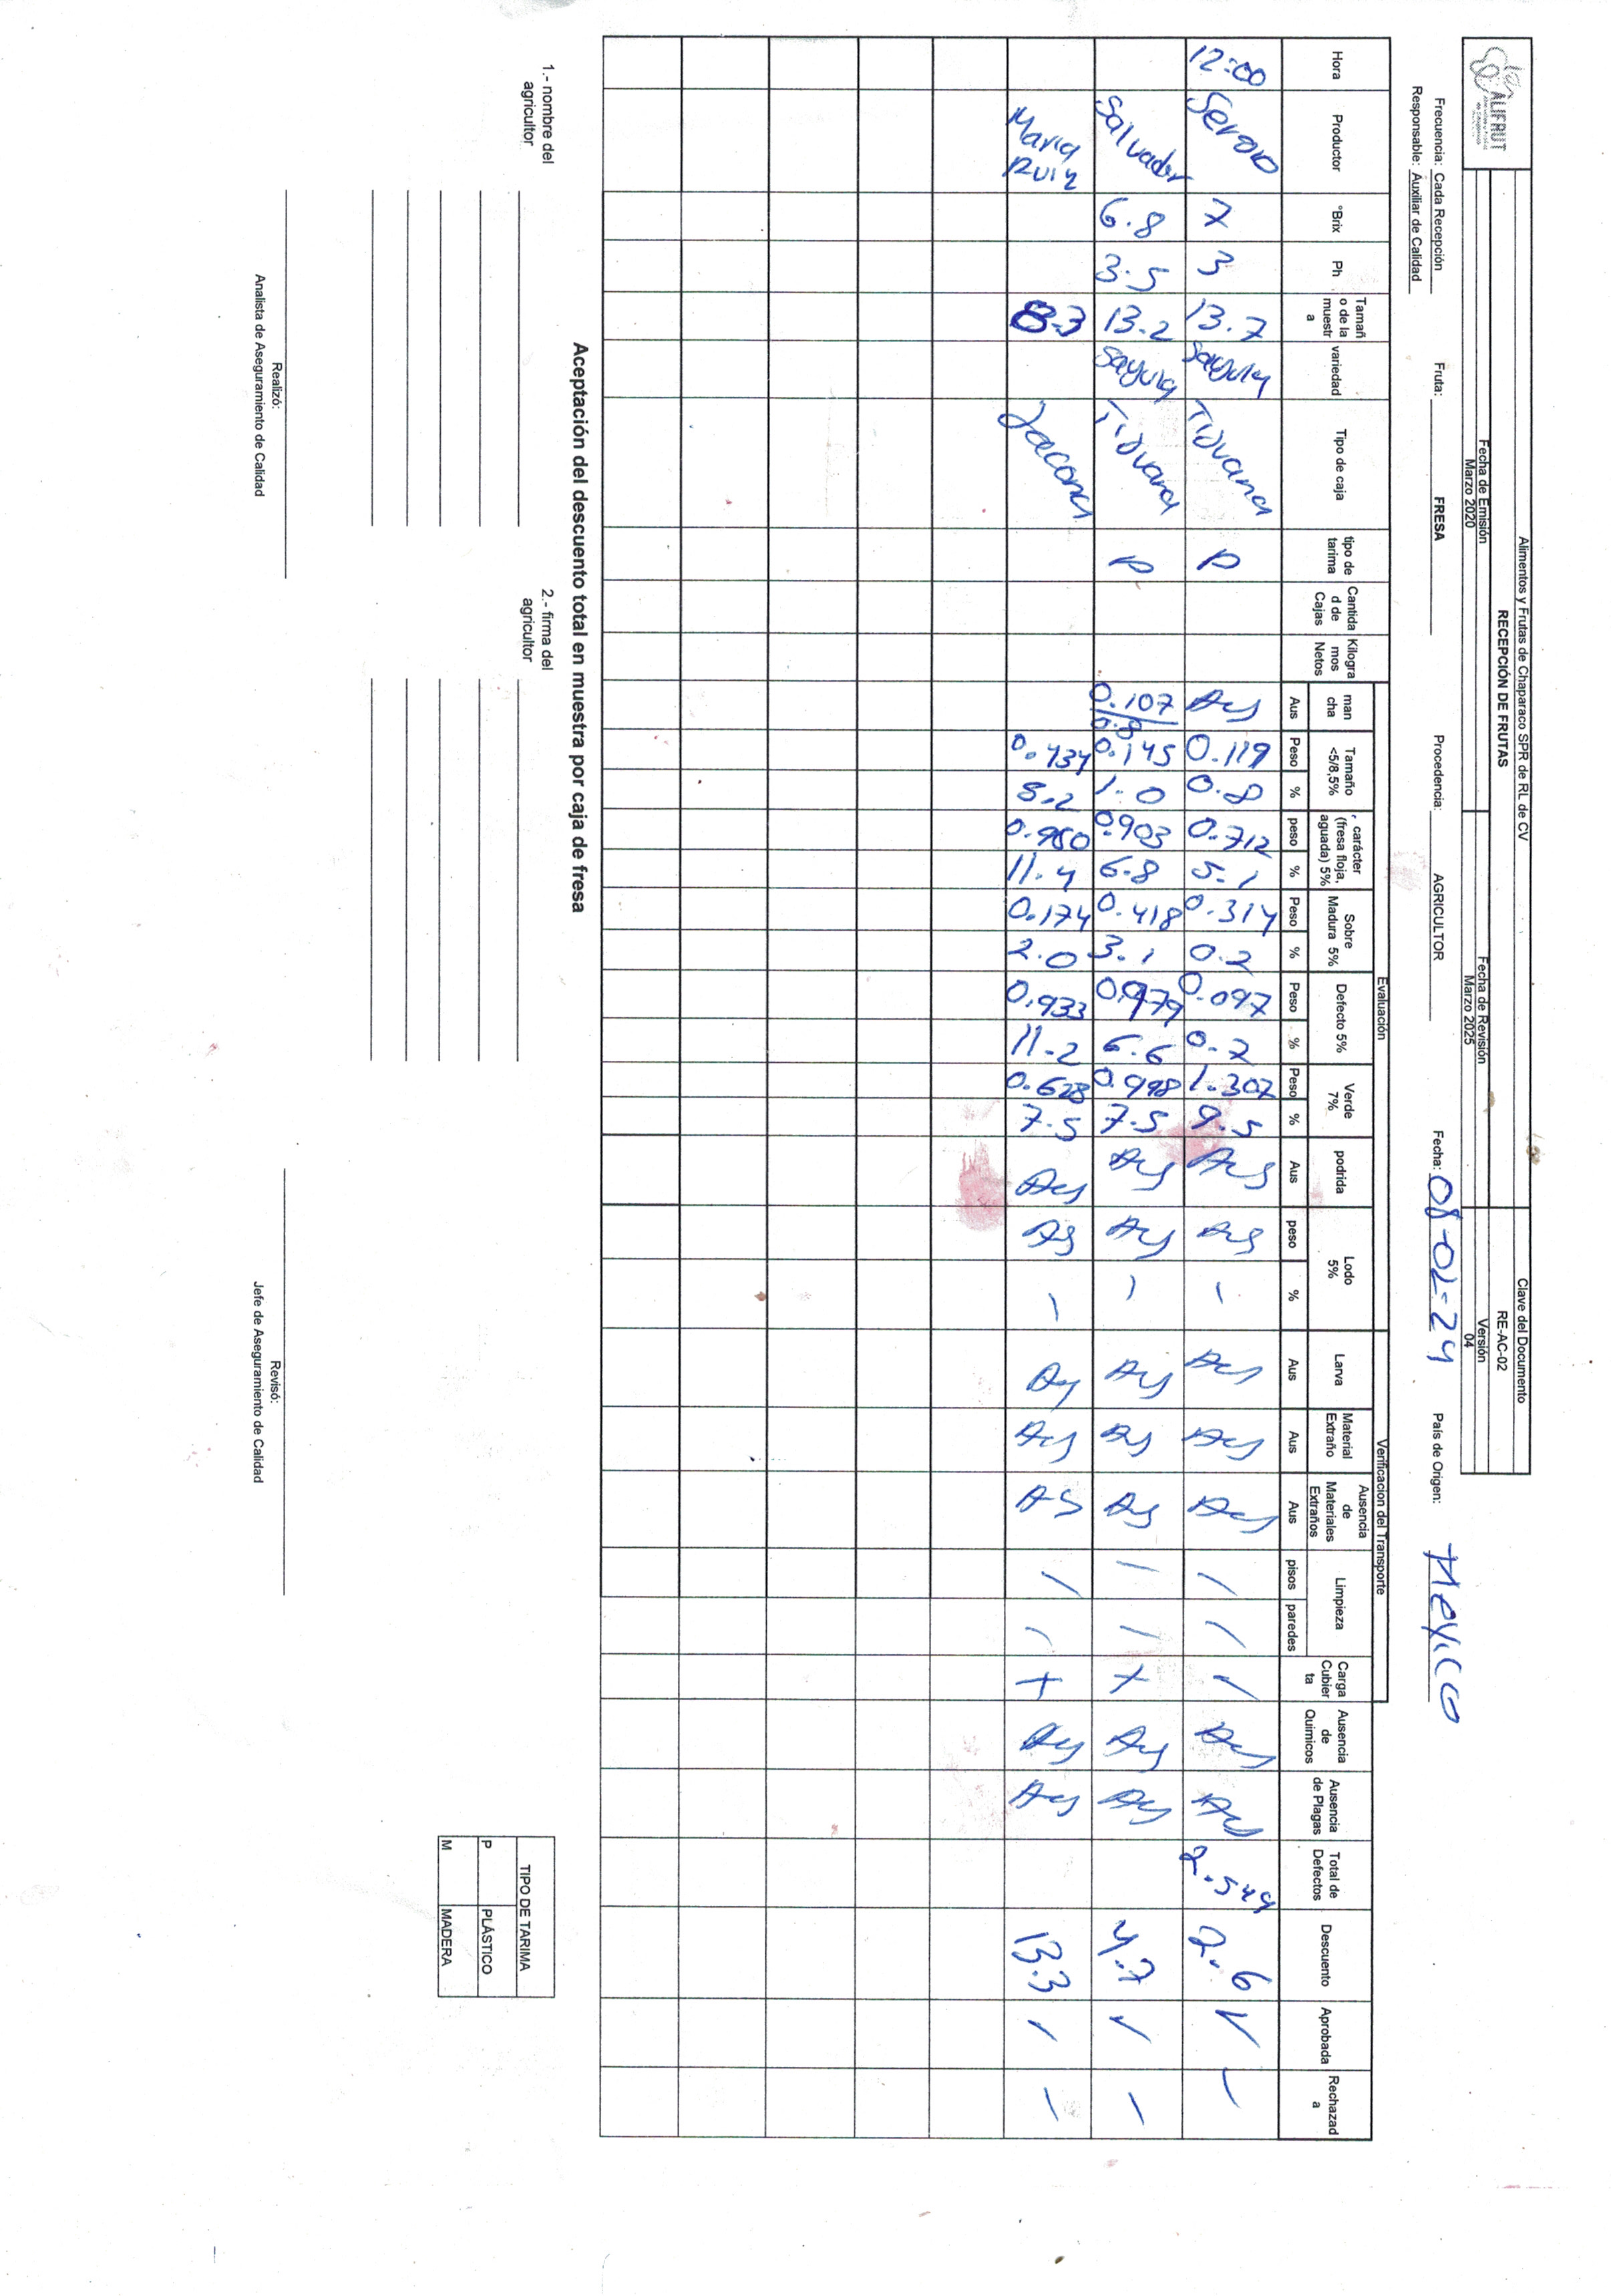 ALIFRUT
Alimentos y Frutas de Chaparaco SPR de RL de CV
RECEPCIÓN DE FRUTAS
Fecha de Emisión
Marzo 2020
Fecha de Revisión
Marzo 2025
Clave del Documento
RE-AC-02
Versión
04
Frecuencia: Cada Recepción Fruta: FRESA Procedencia: AGRICULTOR Fecha: 08-02-24 País de Origen: Mexico
Responsable: Auxiliar de Calidad
Evaluación Verificacion del Transporte
Hora Productor °Brix Ph Tamañ o de la muestr a variedad Tipo de caja tipo de tarima Cantida d de Cajas Kilogra mos Netos man cha Tamaño <5/8,5% carácter (fresa floja, aguada) 5% Sobre Madura 5% Defecto 5% Verde 7% podrida Lodo 5% Larva Material Extraño Ausencia de Materiales Extraños Limpieza Carga Cubier ta Ausencia de Quimicos Ausencia de Plagas Total de Defectos Descuento Aprobada Rechazad a
Aus Peso % peso % Peso % Peso % Peso % Aus peso % Aus Aus Aus pisos paredes
12:00 7 3 13.7 Tijuana P Aus 0.119 0.8 0.712 5.1 0.314 0.2 0.097 0.7 1.302 9.5 Aus Aus - Aus Aus Aus / / ✓ Aus Aus 2.549 2.6 ✓ -
Salvador 6.8 3.5 13.2 Sayula Tijuana P 0.107 0.8 0.145 1.0 0.903 6.8 0.418 3.1 0.979 6.6 0.998 7.5 Aus Aus - Aus Aus Aus / / + Aus Aus 4.7 ✓ -
Maria Ruiz 8.3 Jacona 0.437 5.2 0.950 11.4 0.174 2.0 0.933 11.2 0.628 7.5 Aus Aus - Aus Aus Aus / / + Aus Aus 13.3 ✓ -
Aceptación del descuento total en muestra por caja de fresa
1.- nombre del agricultor
2.- firma del agricultor
TIPO DE TARIMA
P PLÁSTICO
M MADERA
Realizó:
Analista de Aseguramiento de Calidad
Revisó:
Jefe de Aseguramiento de Calidad